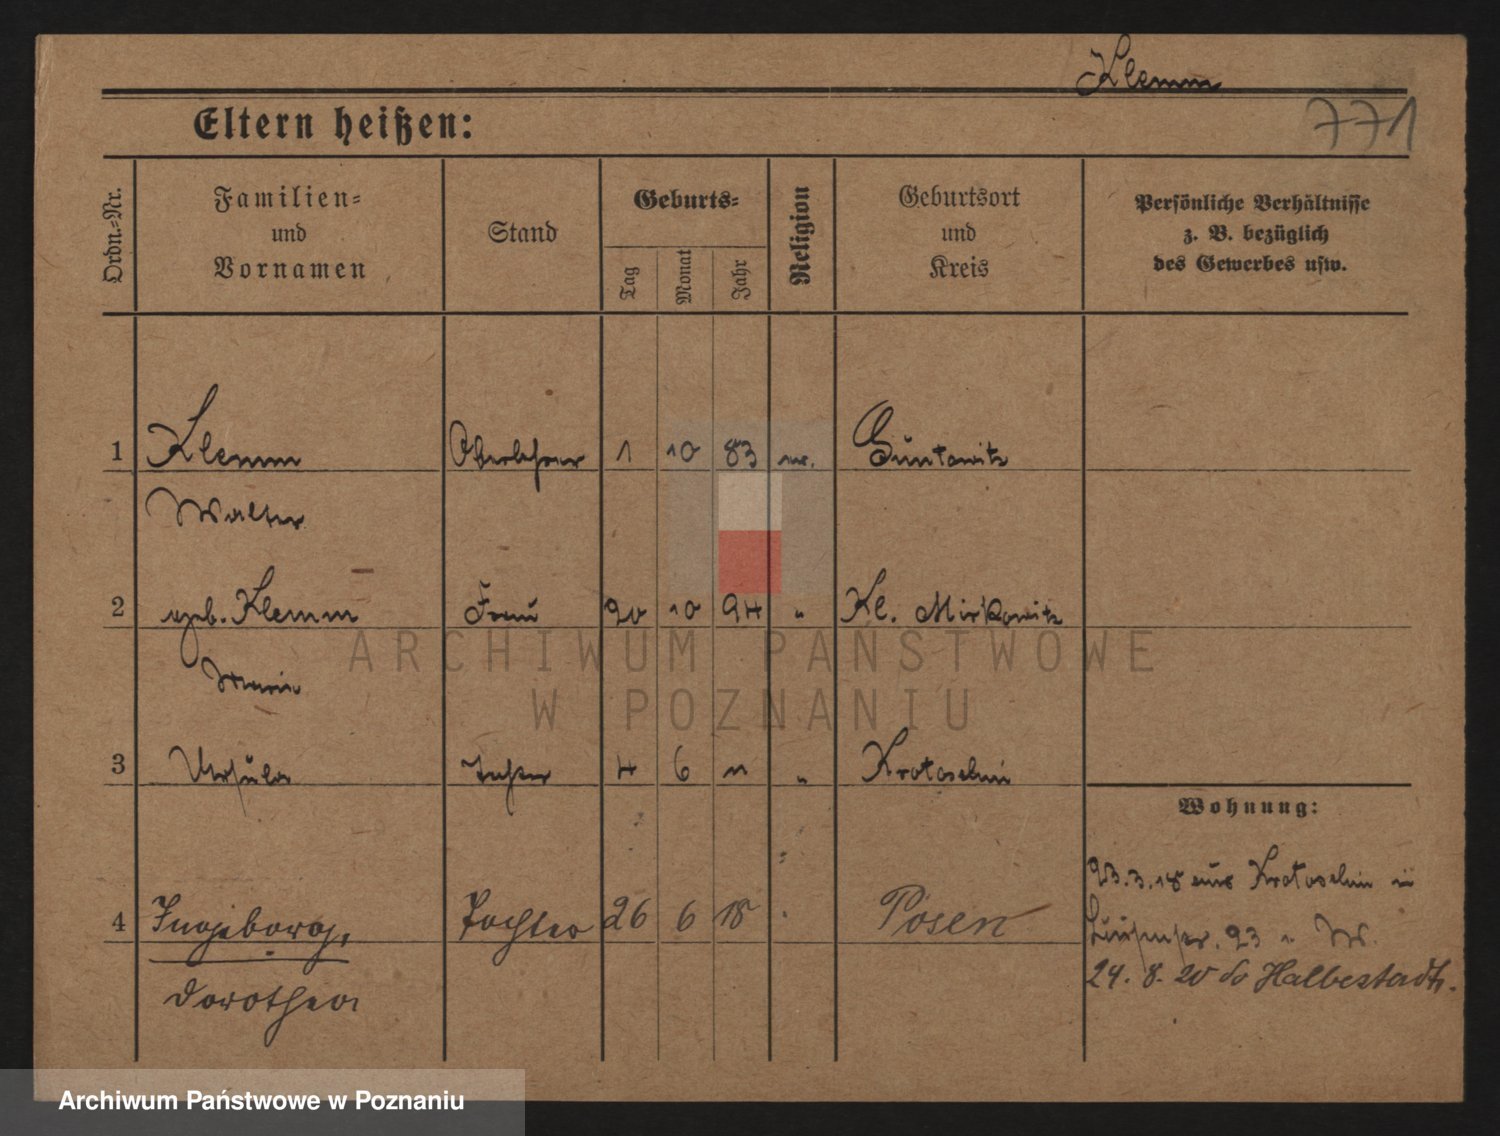 Klemm
771
Eltern heißen:
Ordn.-Nr.
Familien-
und
Vornamen
Stand
Geburts-
Tag
Monat
Jahr
Religion
Geburtsort
und
Kreis
Persönliche Verhältnisse
z. B. bezüglich
des Gewerbes usw.
1 Klemm Oberlehrer 1 10 83 ev.
Walter
2 geb. Klemm Frau 20 10 94 " Kl.
Maria
3 Ursula Tochter 4 6 " Krotoschin
Wohnung:
23.3.18 aus Krotoschin in
4 Ingeborg, Tochter 26 6 18 Posen
23 W.
Dorothea
24. 8. 20 Halberstadt.
ARCHIWUM PAŃSTWOWE
W POZNANIU
Archiwum Państwowe w Poznaniu